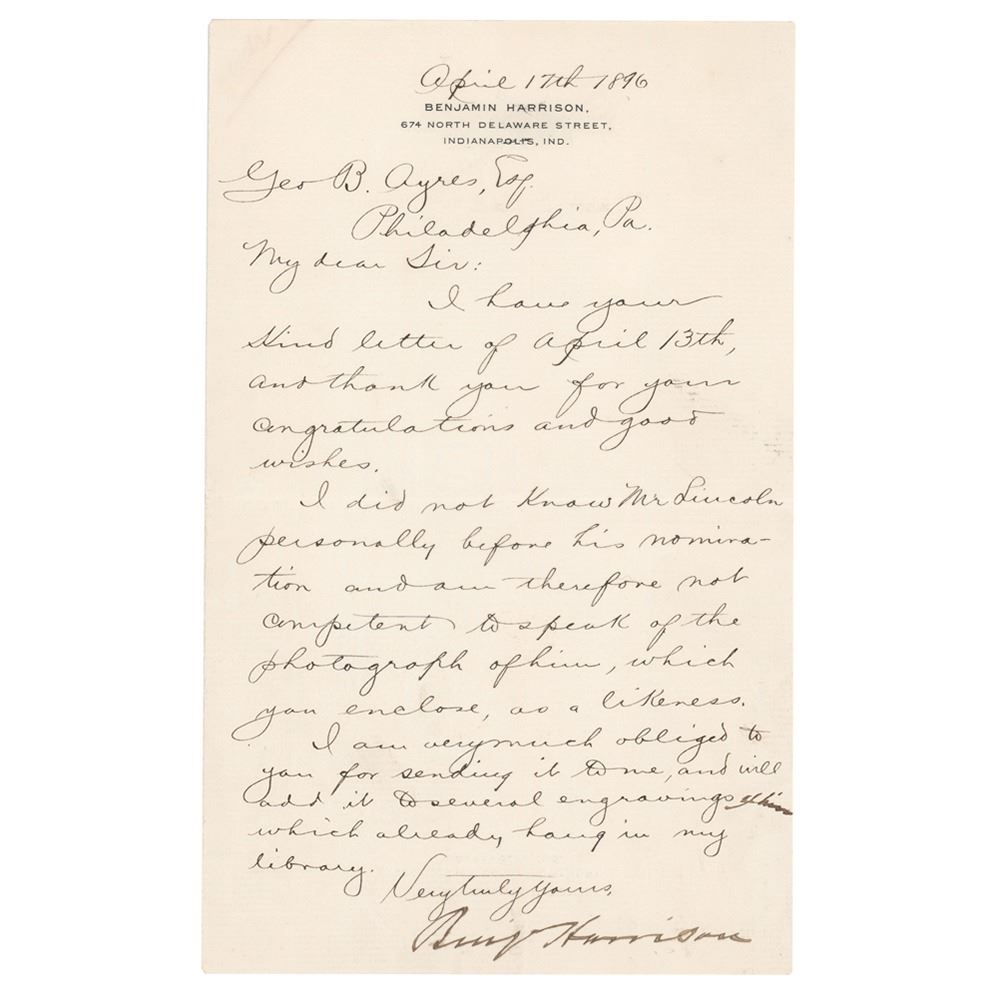 April 17th 1896
BENJAMIN HARRISON,
674 NORTH DELAWARE STREET,
INDIANAPOLIS, IND.
Geo B. Ayres, Esq.
Philadelphia, Pa.
My dear Sir:
I have your
kind letter of April 13th,
and thank you for your
congratulations and good
wishes.
I did not know Mr Lincoln
personally before his nomina-
tion and am therefore not
competent to speak of the
photograph of him, which
you enclose, as a likeness.
I am very much obliged to
you for sending it to me, and will
add it to several engravings of him
which already hang in my
library.
Very truly yours,
Benj Harrison